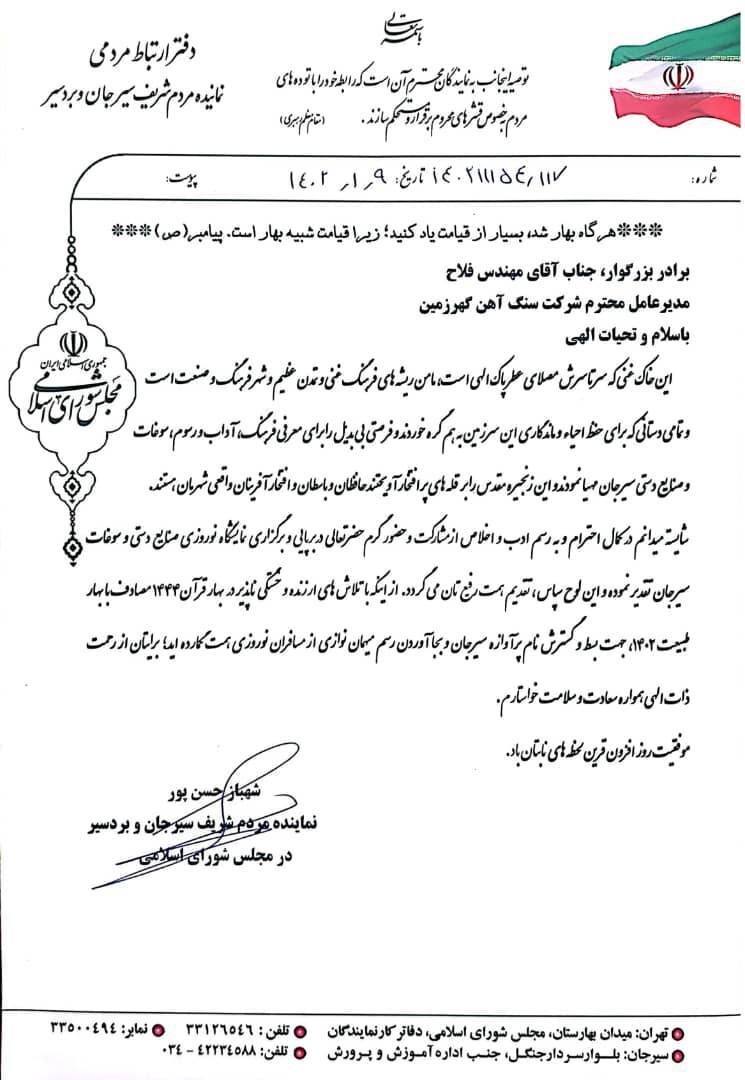 باسمه تعالی
دفتر ارتباط مردمی
نماینده مردم شریف سیرجان و بردسیر
توصیه اینجانب به نمایندگان محترم آن است که رابطه خود را با توده های
مردم به خصوص قشرهای محروم برقرار و مستحکم سازند. (مقام معظم رهبری)
شماره: ۱۴۰۲۱۱۱۵۴/۱۱۷ تاریخ: ۱۴۰۲/۱/۹ پیوست:
***هرگاه بهار شد، بسیار از قیامت یاد کنید؛ زیرا قیامت شبیه بهار است. پیامبر(ص)***
برادر بزرگوار، جناب آقای مهندس فلاح
مدیرعامل محترم شرکت سنگ آهن گهرزمین
باسلام و تحیات الهی
جمهوری اسلامی ایران
مجلس شورای اسلامی
این خاک غنی که سرتاسرش مصلای عطر پاک الهی است، مامن ریشه های فرهنگ غنی و تمدن عظیم و شهر فرهنگ و صنعت است
و تمامی دستانی که برای حفظ احیاء و ماندگاری این سرزمین به هم گره خوردند و فرصتی بی بدیل را برای معرفی فرهنگ، آداب و رسوم، سوغات
و صنایع دستی سیرجان مهیا نمودند و این زنجیره مقدس را بر قله های پر افتخار آویختند حافظان و باسطان و افتخار آفرینان واقعی شهرمان هستند.
شایسته میدانم در کمال احترام و به رسم ادب و اخلاص از مشارکت و حضور گرم حضرتعالی در برپایی و برگزاری نمایشگاه نوروزی صنایع دستی و سوغات
سیرجان تقدیر نموده و این لوح سپاس، تقدیم همت رفیع تان می گردد. از اینکه با تلاش های ارزنده و خستگی ناپذیر در بهار قرآن ۱۴۴۴ مصادف با بهار
طبیعت ۱۴۰۲، جهت بسط و گسترش نام پرآوازه سیرجان و بجا آوردن رسم میهمان نوازی از مسافران نوروزی همت گمارده اید؛ برایتان از رحمت
ذات الهی همواره سعادت و سلامت خواستارم.
موفقیت روز افزون قرین لحظه های نابتان باد.
شهباز حسن پور
نماینده مردم شریف سیرجان و بردسیر
در مجلس شورای اسلامی
تهران: میدان بهارستان، مجلس شورای اسلامی، دفاتر کار نمایندگان تلفن: ۳۳۱۲۶۵۴۶ نمابر: ۳۳۵۰۰۴۹۴
سیرجان: بلوار سردار جنگل، جنب اداره آموزش و پرورش تلفن: ۴۲۲۳۴۵۸۸ - ۰۳۴